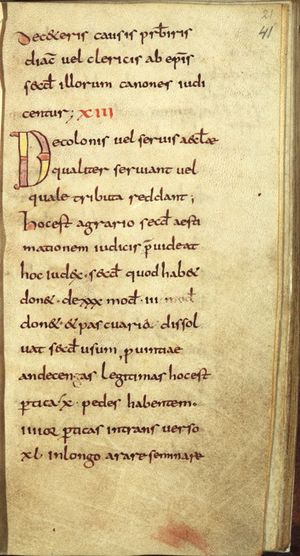 21
41
Decęteris causis prbiris
diac̄ vel clericis ab epīs
secd̄ illorum canones iudi
centur; XIII
Decolonis vel servis aeclae
qualiter serviant vel
quale tributa reddant;
hocest agrario secd̄ aesti
mationem iudicis p̄uideat
hoc iudex · secd̄ quod hab&
don& · de xxx mod̄ · iii mod̄
don& · & pascuariū dissol
vat secd̄ usum puintiae
andecengas legitimas hocest
ptica · x · pedes habentem ·
iiiior pticas intrans verso
xl · inlongo arare seminare